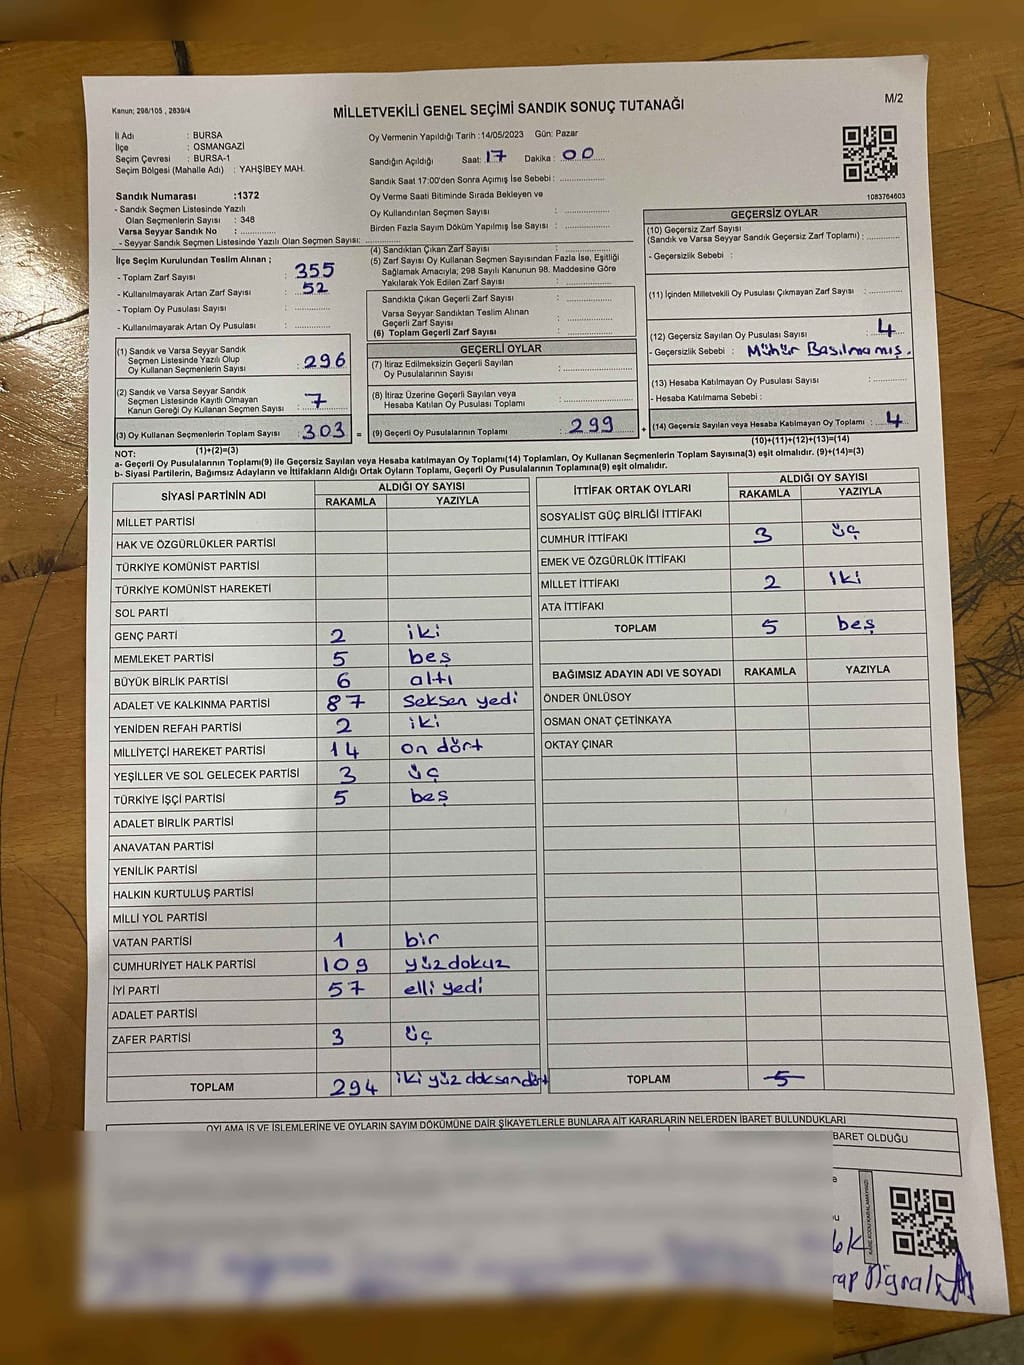 Kanun; 298/105 , 2839/4
MİLLETVEKİLİ GENEL SEÇİMİ SANDIK SONUÇ TUTANAĞI
M/2
İl Adı : BURSA
İlçe : OSMANGAZİ
Seçim Çevresi : BURSA-1
Seçim Bölgesi (Mahalle Adı) : YAHŞİBEY MAH.
Oy Vermenin Yapıldığı Tarih :14/05/2023 Gün: Pazar
Sandığın Açıldığı Saat: 17 Dakika : 00
Sandık Saat 17:00'den Sonra Açımış İse Sebebi :
Oy Verme Saati Bitiminde Sırada Bekleyen ve
Oy Kullandırılan Seçmen Sayısı :
Birden Fazla Sayım Döküm Yapılmış İse Sayısı :
1083764603
Sandık Numarası :1372
- Sandık Seçmen Listesinde Yazılı
Olan Seçmenlerin Sayısı : 348
Varsa Seyyar Sandık No :
- Seyyar Sandık Seçmen Listesinde Yazılı Olan Seçmen Sayısı:
İlçe Seçim Kurulundan Teslim Alınan ;
- Toplam Zarf Sayısı : 355
- Kullanılmayarak Artan Zarf Sayısı : 52
- Toplam Oy Pusulası Sayısı :
- Kullanılmayarak Artan Oy Pusulası :
(1) Sandık ve Varsa Seyyar Sandık
Seçmen Listesinde Yazılı Olup
Oy Kullanan Seçmenlerin Sayısı : 296
(2) Sandık ve Varsa Seyyar Sandık
Seçmen Listesinde Kayıtlı Olmayan
Kanun Gereği Oy Kullanan Seçmen Sayısı : 7
(3) Oy Kullanan Seçmenlerin Toplam Sayısı : 303 =
(1)+(2)=(3)
(4) Sandıktan Çıkan Zarf Sayısı :
(5) Zarf Sayısı Oy Kullanan Seçmen Sayısından Fazla İse, Eşitliği
Sağlamak Amacıyla; 298 Sayılı Kanunun 98. Maddesine Göre
Yakılarak Yok Edilen Zarf Sayısı :
Sandıkta Çıkan Geçerli Zarf Sayısı :
Varsa Seyyar Sandıktan Teslim Alınan
Geçerli Zarf Sayısı :
(6) Toplam Geçerli Zarf Sayısı :
GEÇERLİ OYLAR
(7) İtiraz Edilmeksizin Geçerli Sayılan
Oy Pusulalarının Sayısı :
(8) İtiraz Üzerine Geçerli Sayılan veya
Hesaba Katılan Oy Pusulası Toplamı :
(9) Geçerli Oy Pusulalarının Toplamı : 299 +
GEÇERSİZ OYLAR
(10) Geçersiz Zarf Sayısı
(Sandık ve Varsa Seyyar Sandık Geçersiz Zarf Toplamı) :
- Geçersizlik Sebebi :
(11) İçinden Milletvekili Oy Pusulası Çıkmayan Zarf Sayısı :
(12) Geçersiz Sayılan Oy Pusulası Sayısı : 4
- Geçersizlik Sebebi : Mühür Basılmamış.
(13) Hesaba Katılmayan Oy Pusulası Sayısı :
- Hesaba Katılmama Sebebi :
(14) Geçersiz Sayılan veya Hesaba Katılmayan Oy Toplamı : 4
(10)+(11)+(12)+(13)=(14)
NOT:
a- Geçerli Oy Pusulalarının Toplamı(9) ile Geçersiz Sayılan veya Hesaba katılmayan Oy Toplamı(14) Toplamları, Oy Kullanan Seçmenlerin Toplam Sayısına(3) eşit olmalıdır. (9)+(14)=(3)
b- Siyasi Partilerin, Bağımsız Adayların ve İttifakların Aldığı Ortak Oyların Toplamı, Geçerli Oy Pusulalarının Toplamına(9) eşit olmalıdır.
SİYASİ PARTİNİN ADI ALDIĞI OY SAYISI
RAKAMLA YAZIYLA
MİLLET PARTİSİ
HAK VE ÖZGÜRLÜKLER PARTİSİ
TÜRKİYE KOMÜNİST PARTİSİ
TÜRKİYE KOMÜNİST HAREKETİ
SOL PARTİ
GENÇ PARTİ 2 iki
MEMLEKET PARTİSİ 5 beş
BÜYÜK BİRLİK PARTİSİ 6 altı
ADALET VE KALKINMA PARTİSİ 87 seksen yedi
YENİDEN REFAH PARTİSİ 2 iki
MİLLİYETÇİ HAREKET PARTİSİ 14 on dört
YEŞİLLER VE SOL GELECEK PARTİSİ 3 üç
TÜRKİYE İŞÇİ PARTİSİ 5 beş
ADALET BİRLİK PARTİSİ
ANAVATAN PARTİSİ
YENİLİK PARTİSİ
HALKIN KURTULUŞ PARTİSİ
MİLLİ YOL PARTİSİ
VATAN PARTİSİ 1 bir
CUMHURİYET HALK PARTİSİ 109 yüz dokuz
İYİ PARTİ 57 elli yedi
ADALET PARTİSİ
ZAFER PARTİSİ 3 üç
TOPLAM 294 iki yüz doksan dört
İTTİFAK ORTAK OYLARI ALDIĞI OY SAYISI
RAKAMLA YAZIYLA
SOSYALİST GÜÇ BİRLİĞİ İTTİFAKI
CUMHUR İTTİFAKI 3 üç
EMEK VE ÖZGÜRLÜK İTTİFAKI
MİLLET İTTİFAKI 2 iki
ATA İTTİFAKI
TOPLAM 5 beş
BAĞIMSIZ ADAYIN ADI VE SOYADI RAKAMLA YAZIYLA
ÖNDER ÜNLÜSOY
OSMAN ONAT ÇETİNKAYA
OKTAY ÇINAR
TOPLAM 5
OYLAMA İŞ VE İŞLEMLERİNE VE OYLARIN SAYIM DÖKÜMÜNE DAİR ŞİKAYETLERLE BUNLARA AİT KARARLARIN NELERDEN İBARET BULUNDUKLARI
BARET OLDUĞU
KARE KODU KARALAMAYINIZ!